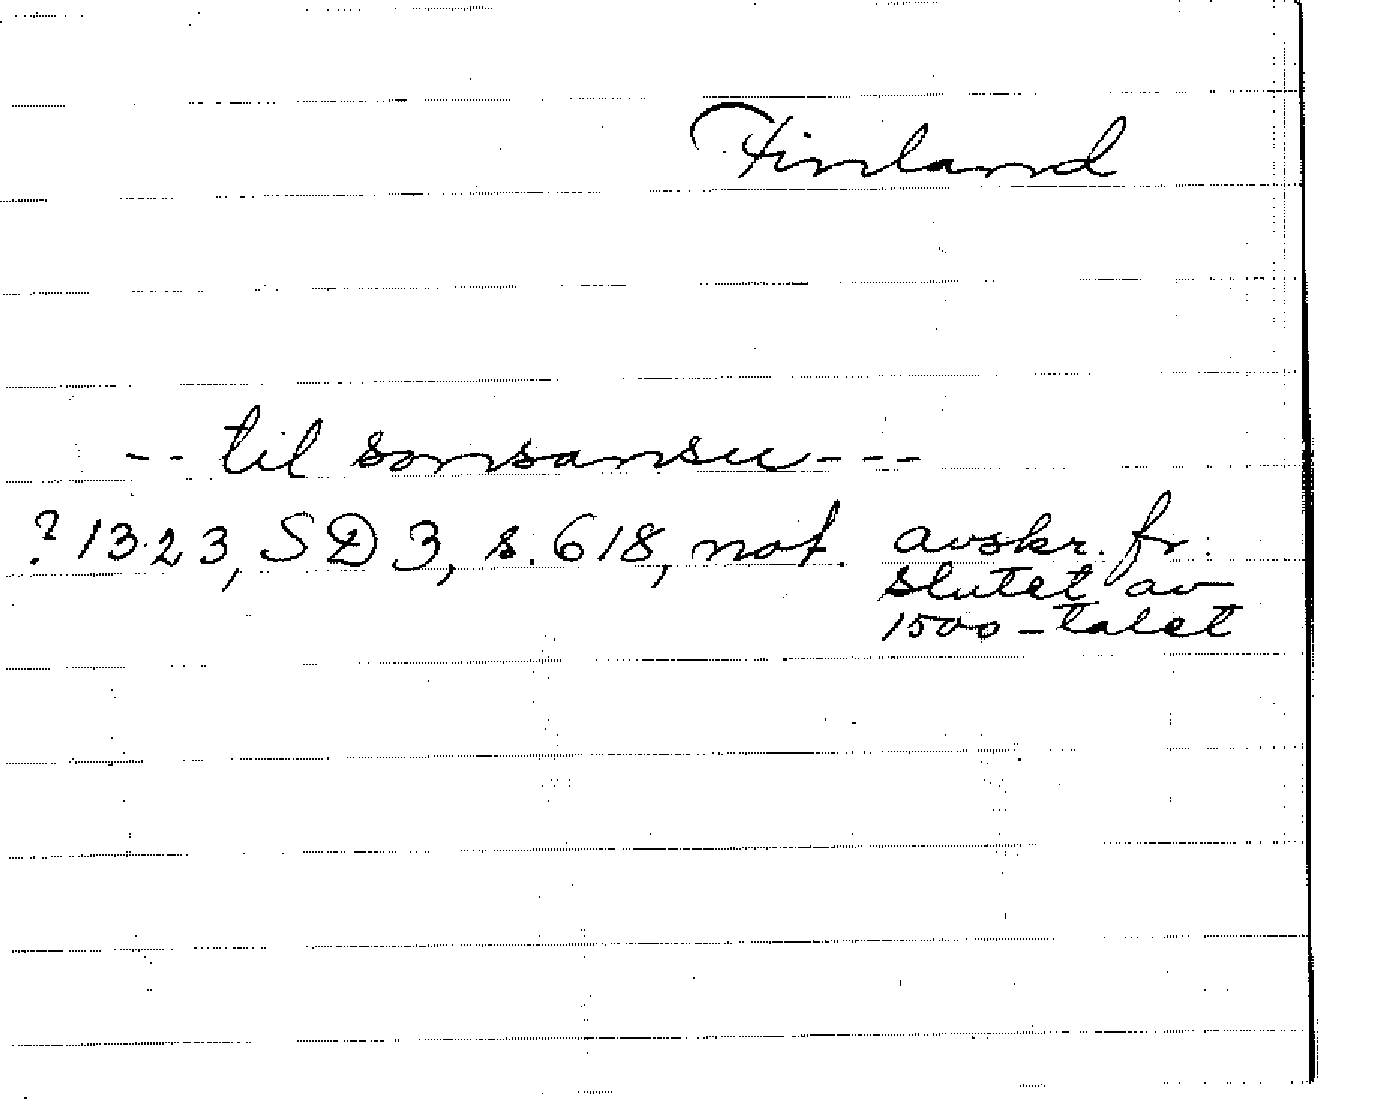 Finland
-- til somsamsu ---
? 1323, SD 3, s. 618, not. avskr. fr.
slutet av
1500-talet